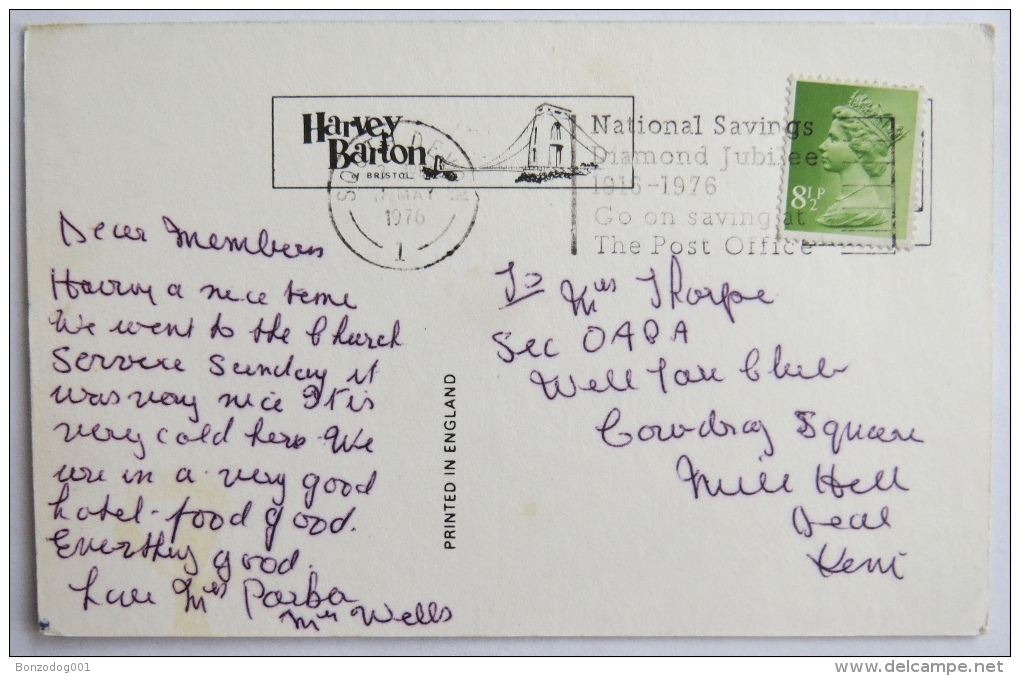 Harvey
Barton
OF BRISTOL
National Savings
Diamond Jubilee
1916-1976
Go on saving at
The Post Office
8½P
MAY
1976
1
Dear Members
Having a nice time
We went to the Church
Service Sunday it
was very nice It is
very cold here We
are in a very good
hotel. food good.
Everthing good.
Love Mrs
Mrs Wells
PRINTED IN ENGLAND
To Mrs Thorpe
Sec OAPA
Well fare Club
Cowdray Square
Mill Hill
Deal
Kent
Bonzodog001
www.delcampe.net